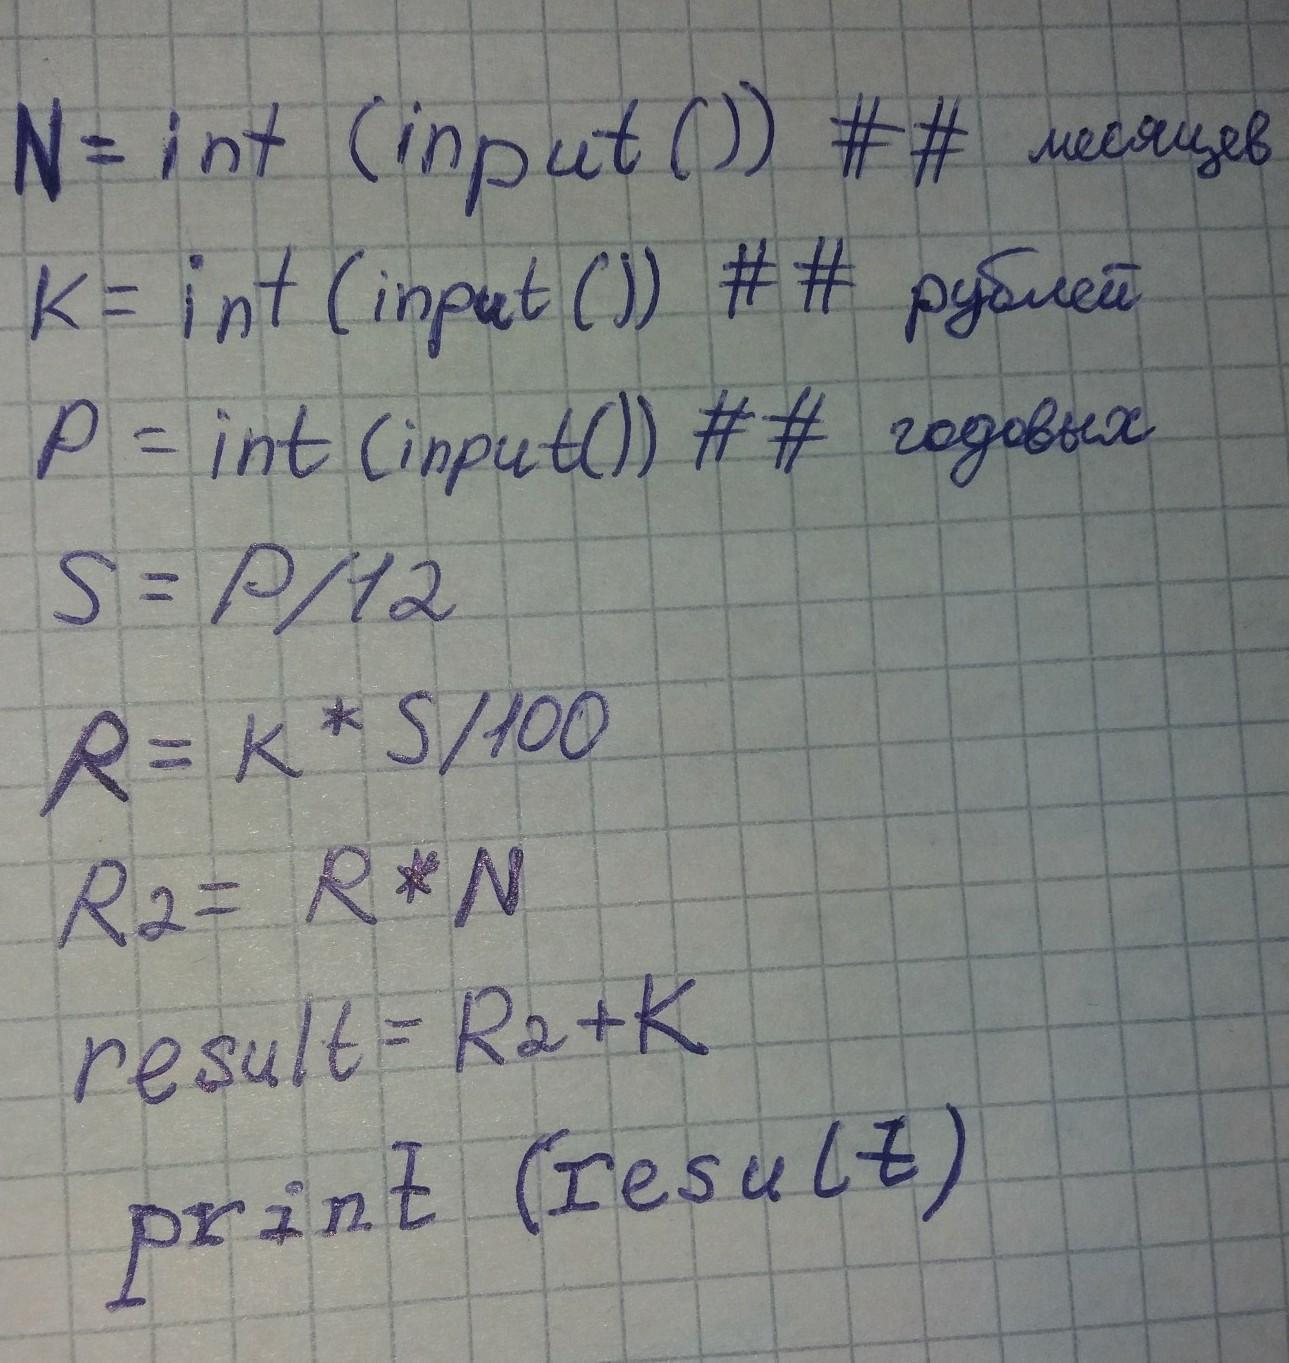 N = int (input ()) ## месяцев
K = int (input ()) ## рублей
P = int (input()) ## годовых
S = P/12
R = K * S/100
R2 = R * N
result = R2 + K
print (result)